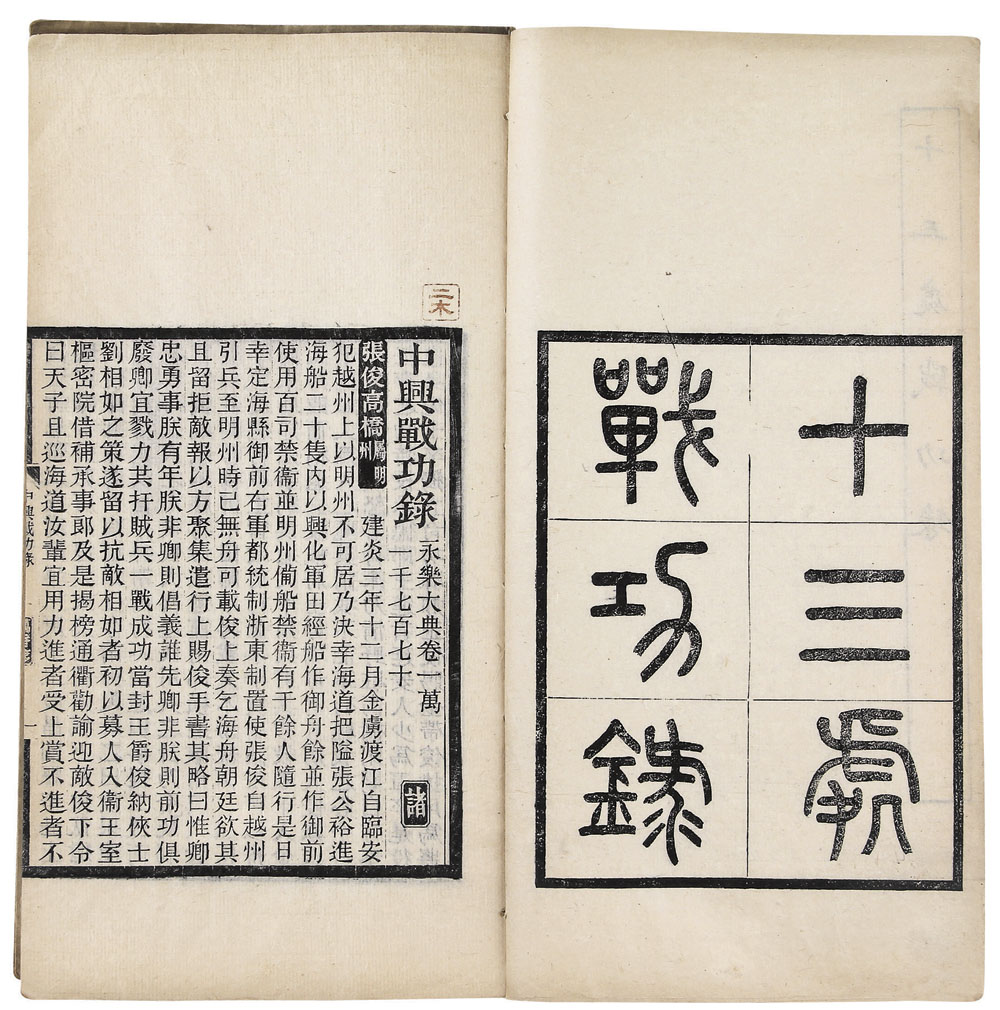 十三處
戰功錄
二木
中興戰功錄 永樂大典卷一萬一千七百七十 諸
張俊高橋屬明州 建炎三年十二月金虜渡江自臨安
犯越州上以明州不可居乃決幸海道把隘張公裕進
海船二十隻內以興化軍田經船作御舟餘並作御前
使用百司禁衞並明州僱船禁衞有千餘人隨行是日
幸定海縣御前右軍都統制浙東制置使張俊自越州
引兵至明州時已無舟可載俊上奏乞海舟朝廷欲其
且留拒敵報以方聚集遣行上賜俊手書其略曰惟卿
忠勇事朕有年朕非卿則倡義誰先卿非朕則前功俱
廢卿宜戮力共扞賊兵一戰成功當封王爵俊納俠士
劉相如之策遂留以抗敵相如者初以募人入衞王室
樞密院借補承事郎及是揭榜通衢勸諭迎敵俊下令
曰天子且巡海道汝輩宜用力進者受上賞不進者不
中興戰功錄
一